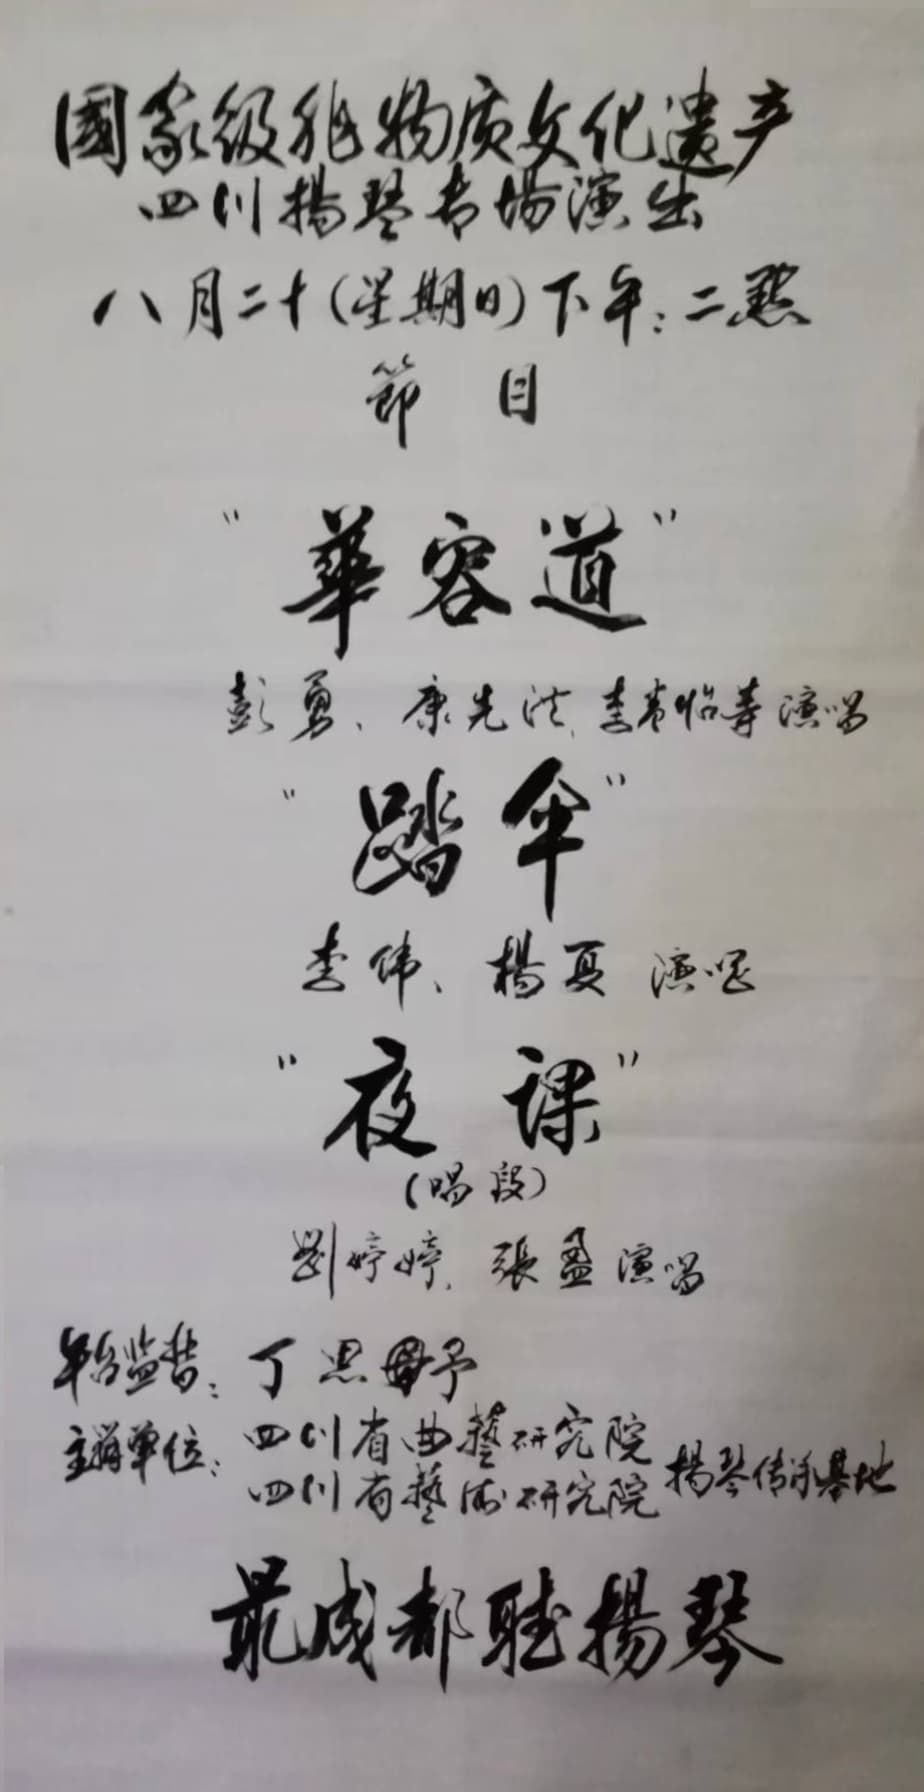 國家级非物质文化遗产
四川揚琴专場演出
八月二十(星期日)下午:二點
節目
"華容道"
彭勇、康先洪、李青怡等演唱
"踏伞"
李伟、楊夏 演唱
"夜课"
(唱段)
劉婷婷、張盈演唱
舞台监督:丁思
主辦单位:四川省曲藝研究院
四川省藝術研究院 揚琴传承基地
最成都聽揚琴